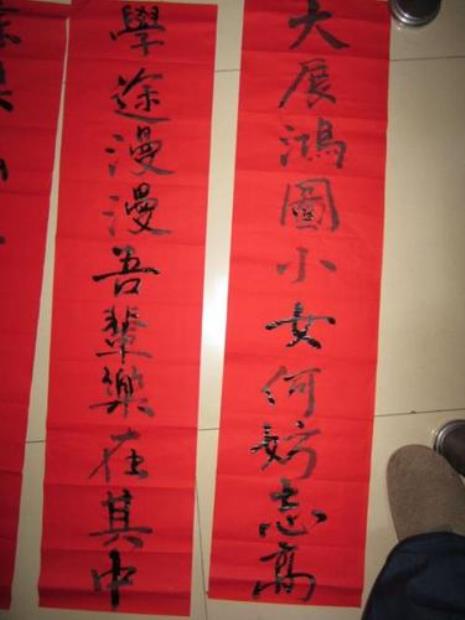 大展鴻圖小女何妨志高
學途漫漫吾輩樂在其中